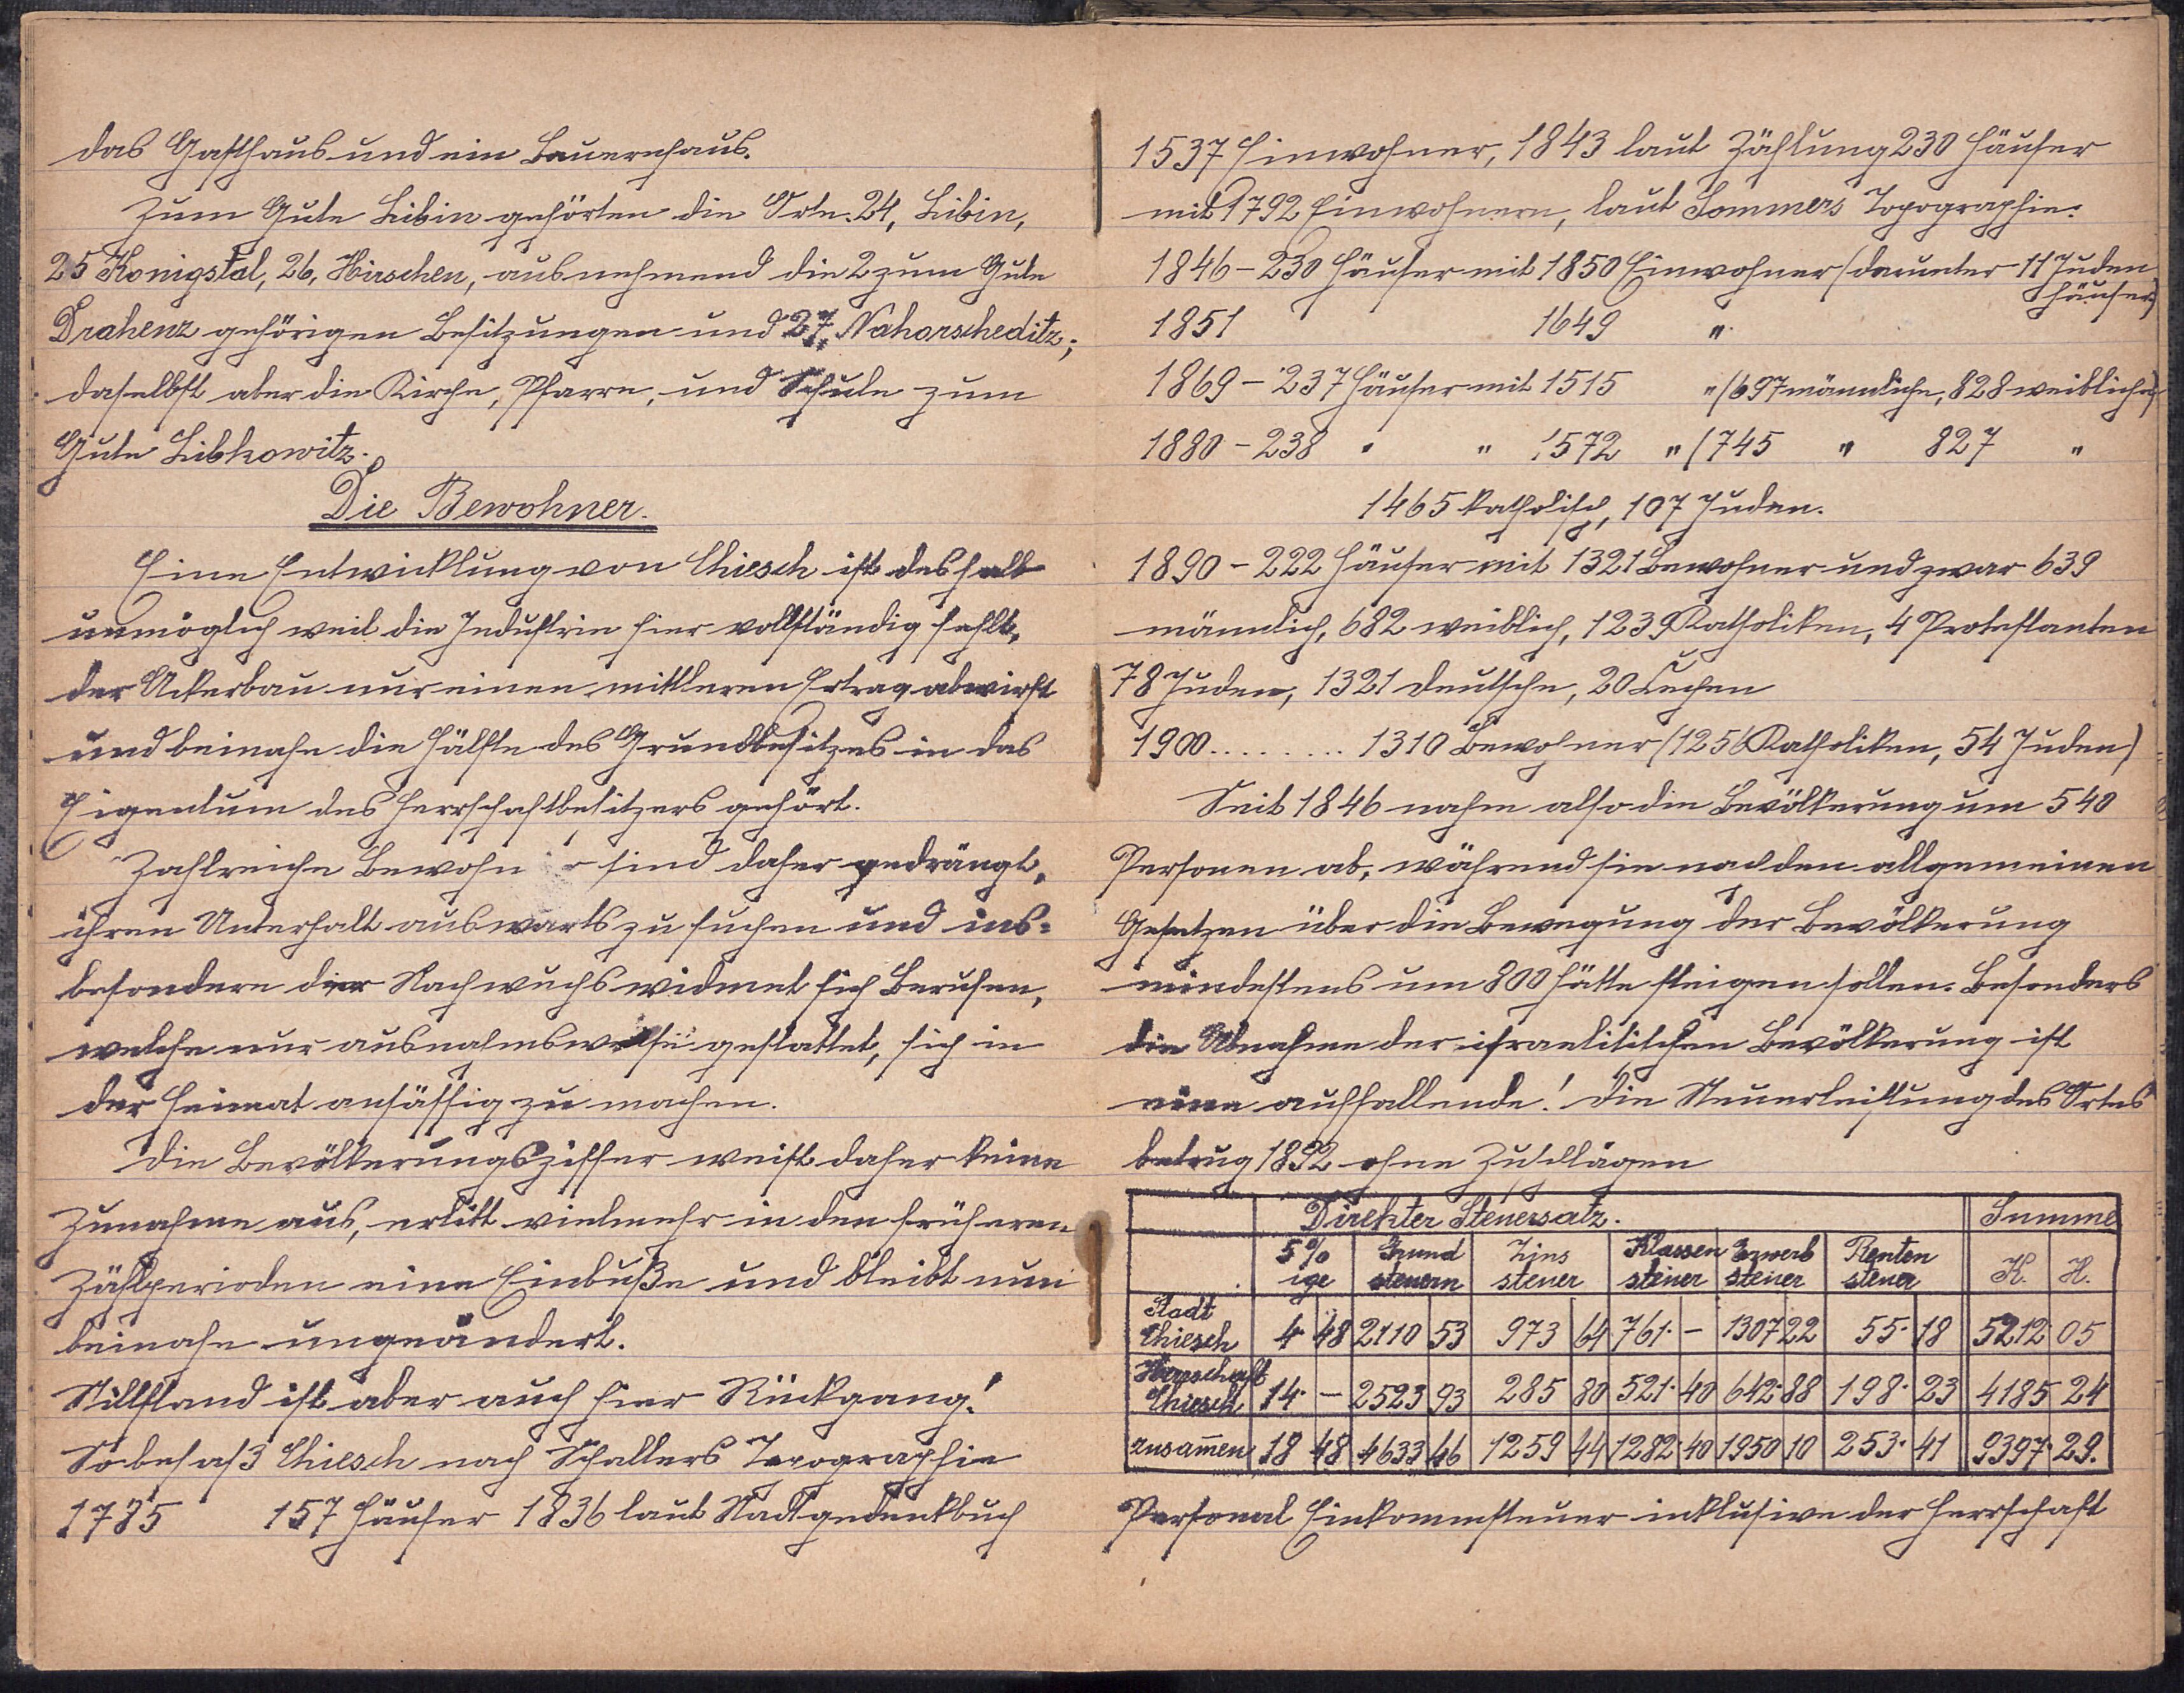 das Gasthaus und ein Bauernhaus.
Zum Gute Libin gehörten die Orte: 24, Libin,
25 Königstal, 26, Hirschen, ausnehmend die 2 zum Gute
Drahenz gehörigen Besitzungen und 27, Nahorscheditz;
daselbst aber die Kirche, Pfarre, und Schule zum
Gute Libkowitz.
Die Bewohner.
Eine Entwicklung von Chiesch ist deshalb
unmöglich weil die Industrie hier vollständig fehlt,
der Ackerbau nur einen mittleren Ertrag abwirft
und beinahe die Hälfte des Grundbesitzes in das
Eigentum des Herrschaftbesitzers gehört.
Zahlreiche Bewohner sind daher gedrängt,
ihren Unterhalt auswärts zu suchen und ins=
besondere der Nachwuchs widmet sich Berufen,
welche nur ausnahmsweise gestattet, sich in
der Heimat ansässig zu machen.
Die Bevölkerungsziffer weist daher keine
Zunahme aus, erlitt vielmehr in den früheren
Zählperioden eine Einbuße und bleibt nun
beinahe ungeändert.
Stillstand ist aber auch hier Rückgang!
So besaß Chiesch nach Schallers Topographie
1785 157 Häuser 1836 laut Stadtgedenkbuch
1537 Einwohner, 1843 laut Zählung 230 Häuser
mit 1792 Einwohnern, laut Sommers Topographie:
1846 - 230 Häuser mit 1850 Einwohner (darunter 11 Juden
häuser)
1851 1649 "
1869 - 237 Häuser mit 1515 " (697 männliche, 828 weibliche)
1880 - 238 " " 1572 " (745 " 827 "
1465 katholisch, 107 Juden.
1890 - 222 Häuser mit 1321 Bewohner und zwar 639
männlich, 682 weiblich, 1239 Katholiken, 4 Protestanten
78 Juden, 1321 Deutsche, 20 Čechen
1900......... 1310 Bewohner (1256 Katholiken, 54 Juden)
Seit 1846 nahm also die Bevölkerung um 540
Personen ab, während sie nach den allgemeinen
Gesetzen über die Bewegung der Bevölkerung
mindestens um 800 hätte steigen sollen. Besonders
die Abnahme der israelitischen Bevölkerung ist
eine auffallende! Die Steuerleistung des Ortes
betrug 1892 ohne Zuschlägen
Direkter Steuersatz. Summe
5% Grund Zins Klassen Erwerb Renten
ige steuern steuer steuer steuer steuer K. H.
Stadt
Chiesch 4· 48 2110 53 973 64 761· - 1307 22 55· 18 5212· 05
Herrschaft
Chiesch 14· - 2523 93 285 80 521· 40 642· 88 198· 23 4185 24
zusam̄en 18 48 4633 46 1259 44 1282· 40 1950 10 253· 41 9397· 29.
Personal Einkommsteuer inklusive der Herrschaft